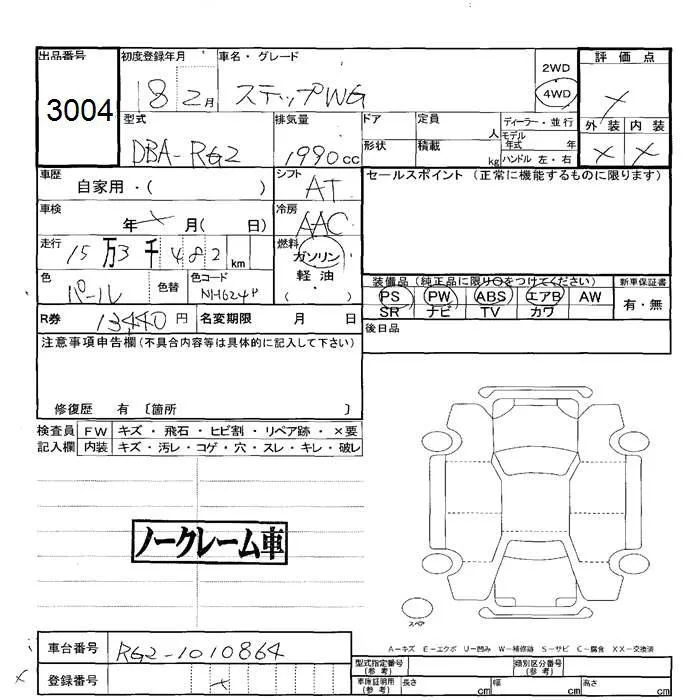 出品番号 初度登録年月 車名・グレード 評価点
3004 18 2月 ステップWG 2WD 4WD ×
型式 排気量 ドア 定員 人 ディーラー・並行 外装 内装
DBA-RG2 1990cc 形状 積載 kg モデル年式 年 ハンドル 左・右 × ×
車歴 自家用・( ) シフト AT セールスポイント (正常に機能するものに限ります)
車検 年 × 月( 日) 冷房 AAC
走行 15万3千482km 燃料 ガソリン 軽油
色 パール 色替 色コード NH624P
装備品 (純正品に限り○をつけてください) 新車保証書
PS PW ABS エアB AW 有・無
SR ナビ TV カワ
R券 13,440円 名変期限 月 日
後日品
注意事項申告欄(不具合内容等は具体的に記入して下さい)
修復歴 有 〔箇所 〕
検査員 FW キズ・飛石・ヒビ割・リペア跡・×要
記入欄 内装 キズ・汚レ・コゲ・穴・スレ・キレ・破レ
ノークレーム車
スペア
A-キズ E-エクボ U-凹み W-補修跡 S-サビ C-腐食 XX-交換済
車台番号 RG2-1010864
登録番号 ×
型式指定番号 (参考) 類別区分番号 (参考)
車庫証明用 (参考) 長さ cm 幅 cm 高さ cm
×